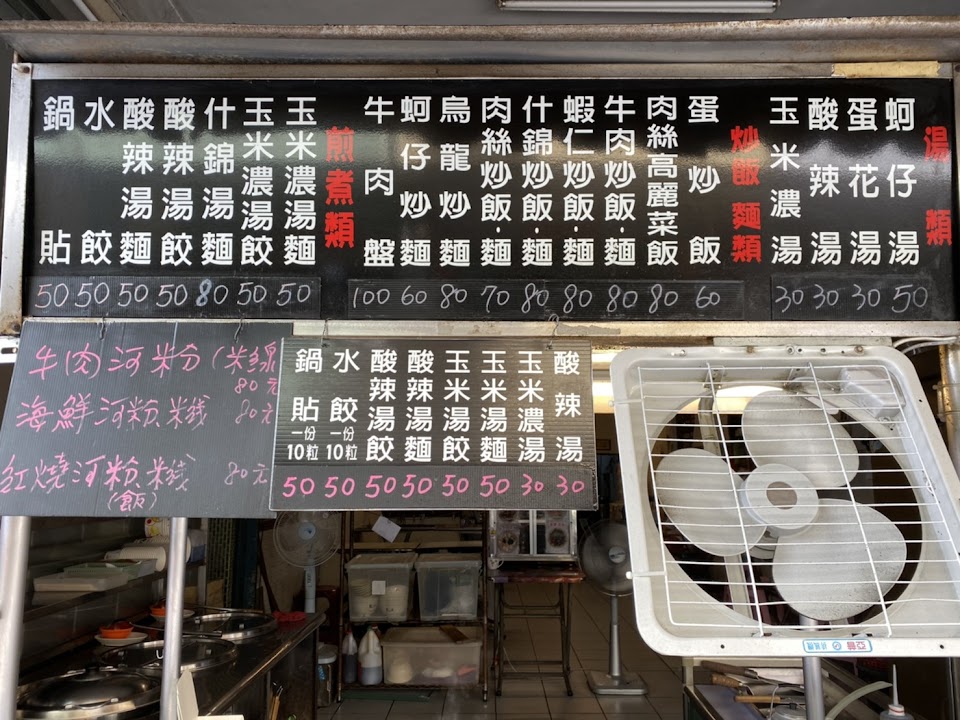 湯類
蚵仔湯 50
蛋花湯 30
酸辣湯 30
玉米濃湯 30
炒飯麵類
蛋炒飯 60
肉絲高麗菜飯 80
牛肉炒飯.麵 80
蝦仁炒飯.麵 80
什錦炒飯.麵 80
肉絲炒飯.麵 70
烏龍炒麵 80
蚵仔炒麵 60
牛肉盤 100
煎煮類
玉米濃湯麵 50
玉米濃湯餃 50
什錦湯麵 80
酸辣湯餃 50
酸辣湯麵 50
水餃 50
鍋貼 50
酸辣湯 30
玉米濃湯 30
玉米湯麵 50
玉米湯餃 50
酸辣湯麵 50
酸辣湯餃 50
水餃一份10粒 50
鍋貼一份10粒 50
牛肉河粉(米線
80元
海鮮河粉.米线 80元
紅燒河粉.米线 80元
(飯)